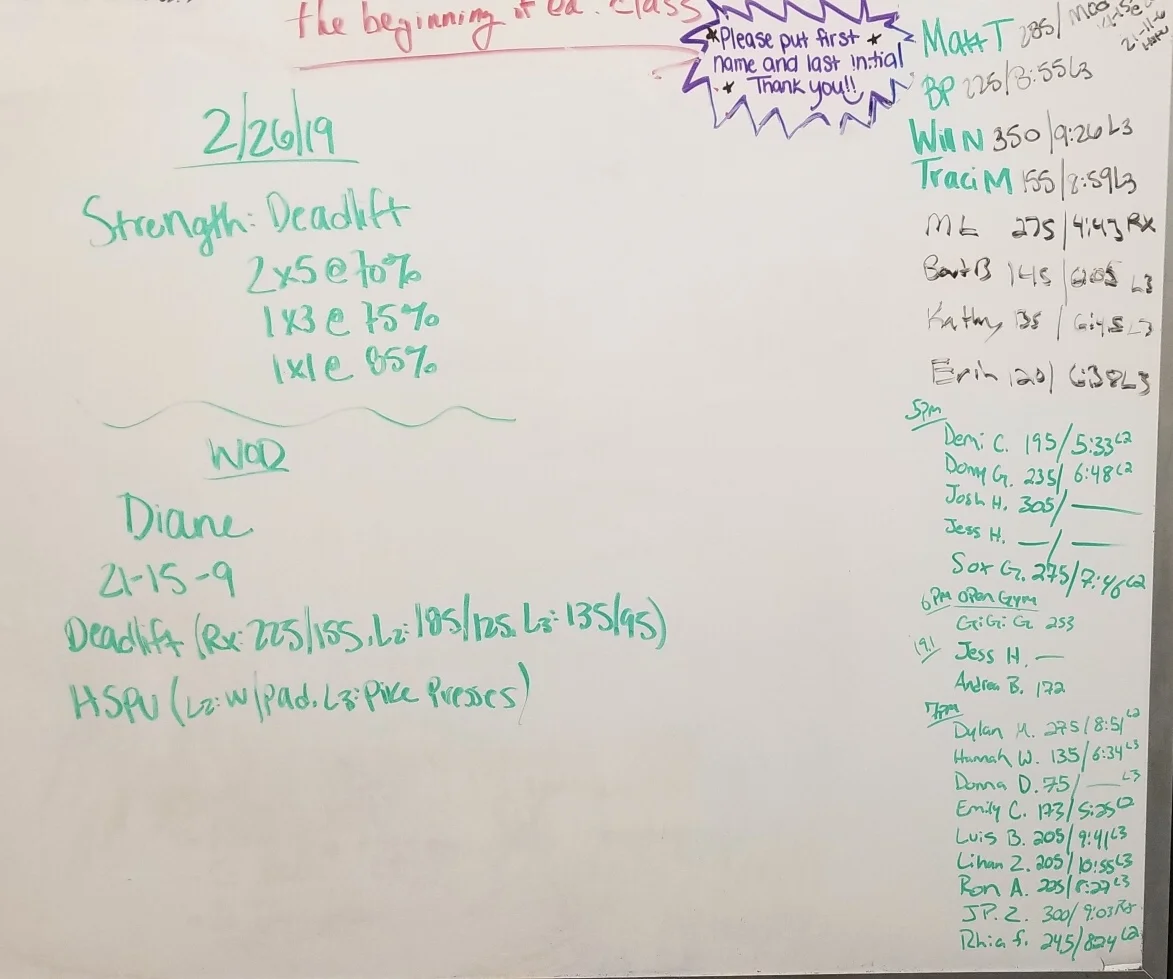 the beginning of ea. class
*Please put first *
name and last initial
* Thank you!!
2/26/19
Strength: Deadlift
2x5 @ 70%
1x3 @ 75%
1x1 @ 85%
WOD
Diane
21-15-9
Deadlift (Rx: 225/155, L2: 185/125, L3: 135/95)
HSPU (L2: W/Pad, L3: Pike Presses)
Matt T 285/
BP 225/8:55L3
Will N 350/9:26L3
Traci M 155/8:59L3
ML 275/4:43 Rx
Bart B 145/ L3
Kathy 135/6:45L3
Erin 120/6:38L3
5pm
Demi C. 195/5:33L2
Dony G. 235/6:48L2
Josh H. 305/—
Jess H. —/—
Sox G. 275/7:46L2
6pm Open Gym
GiGi G 253
19.1 Jess H. —
Andrea B. 172
7pm
Dylan M. 275/8:51L2
Hannah W. 135/6:34L3
Donna D. 75/—L3
Emily C. 173/5:25L2
Luis B. 205/9:41L3
Lihan Z. 205/10:55L3
Ron A. 205/8:27L3
JP. Z. 300/9:03Rx
Rhia f. 245/824L2